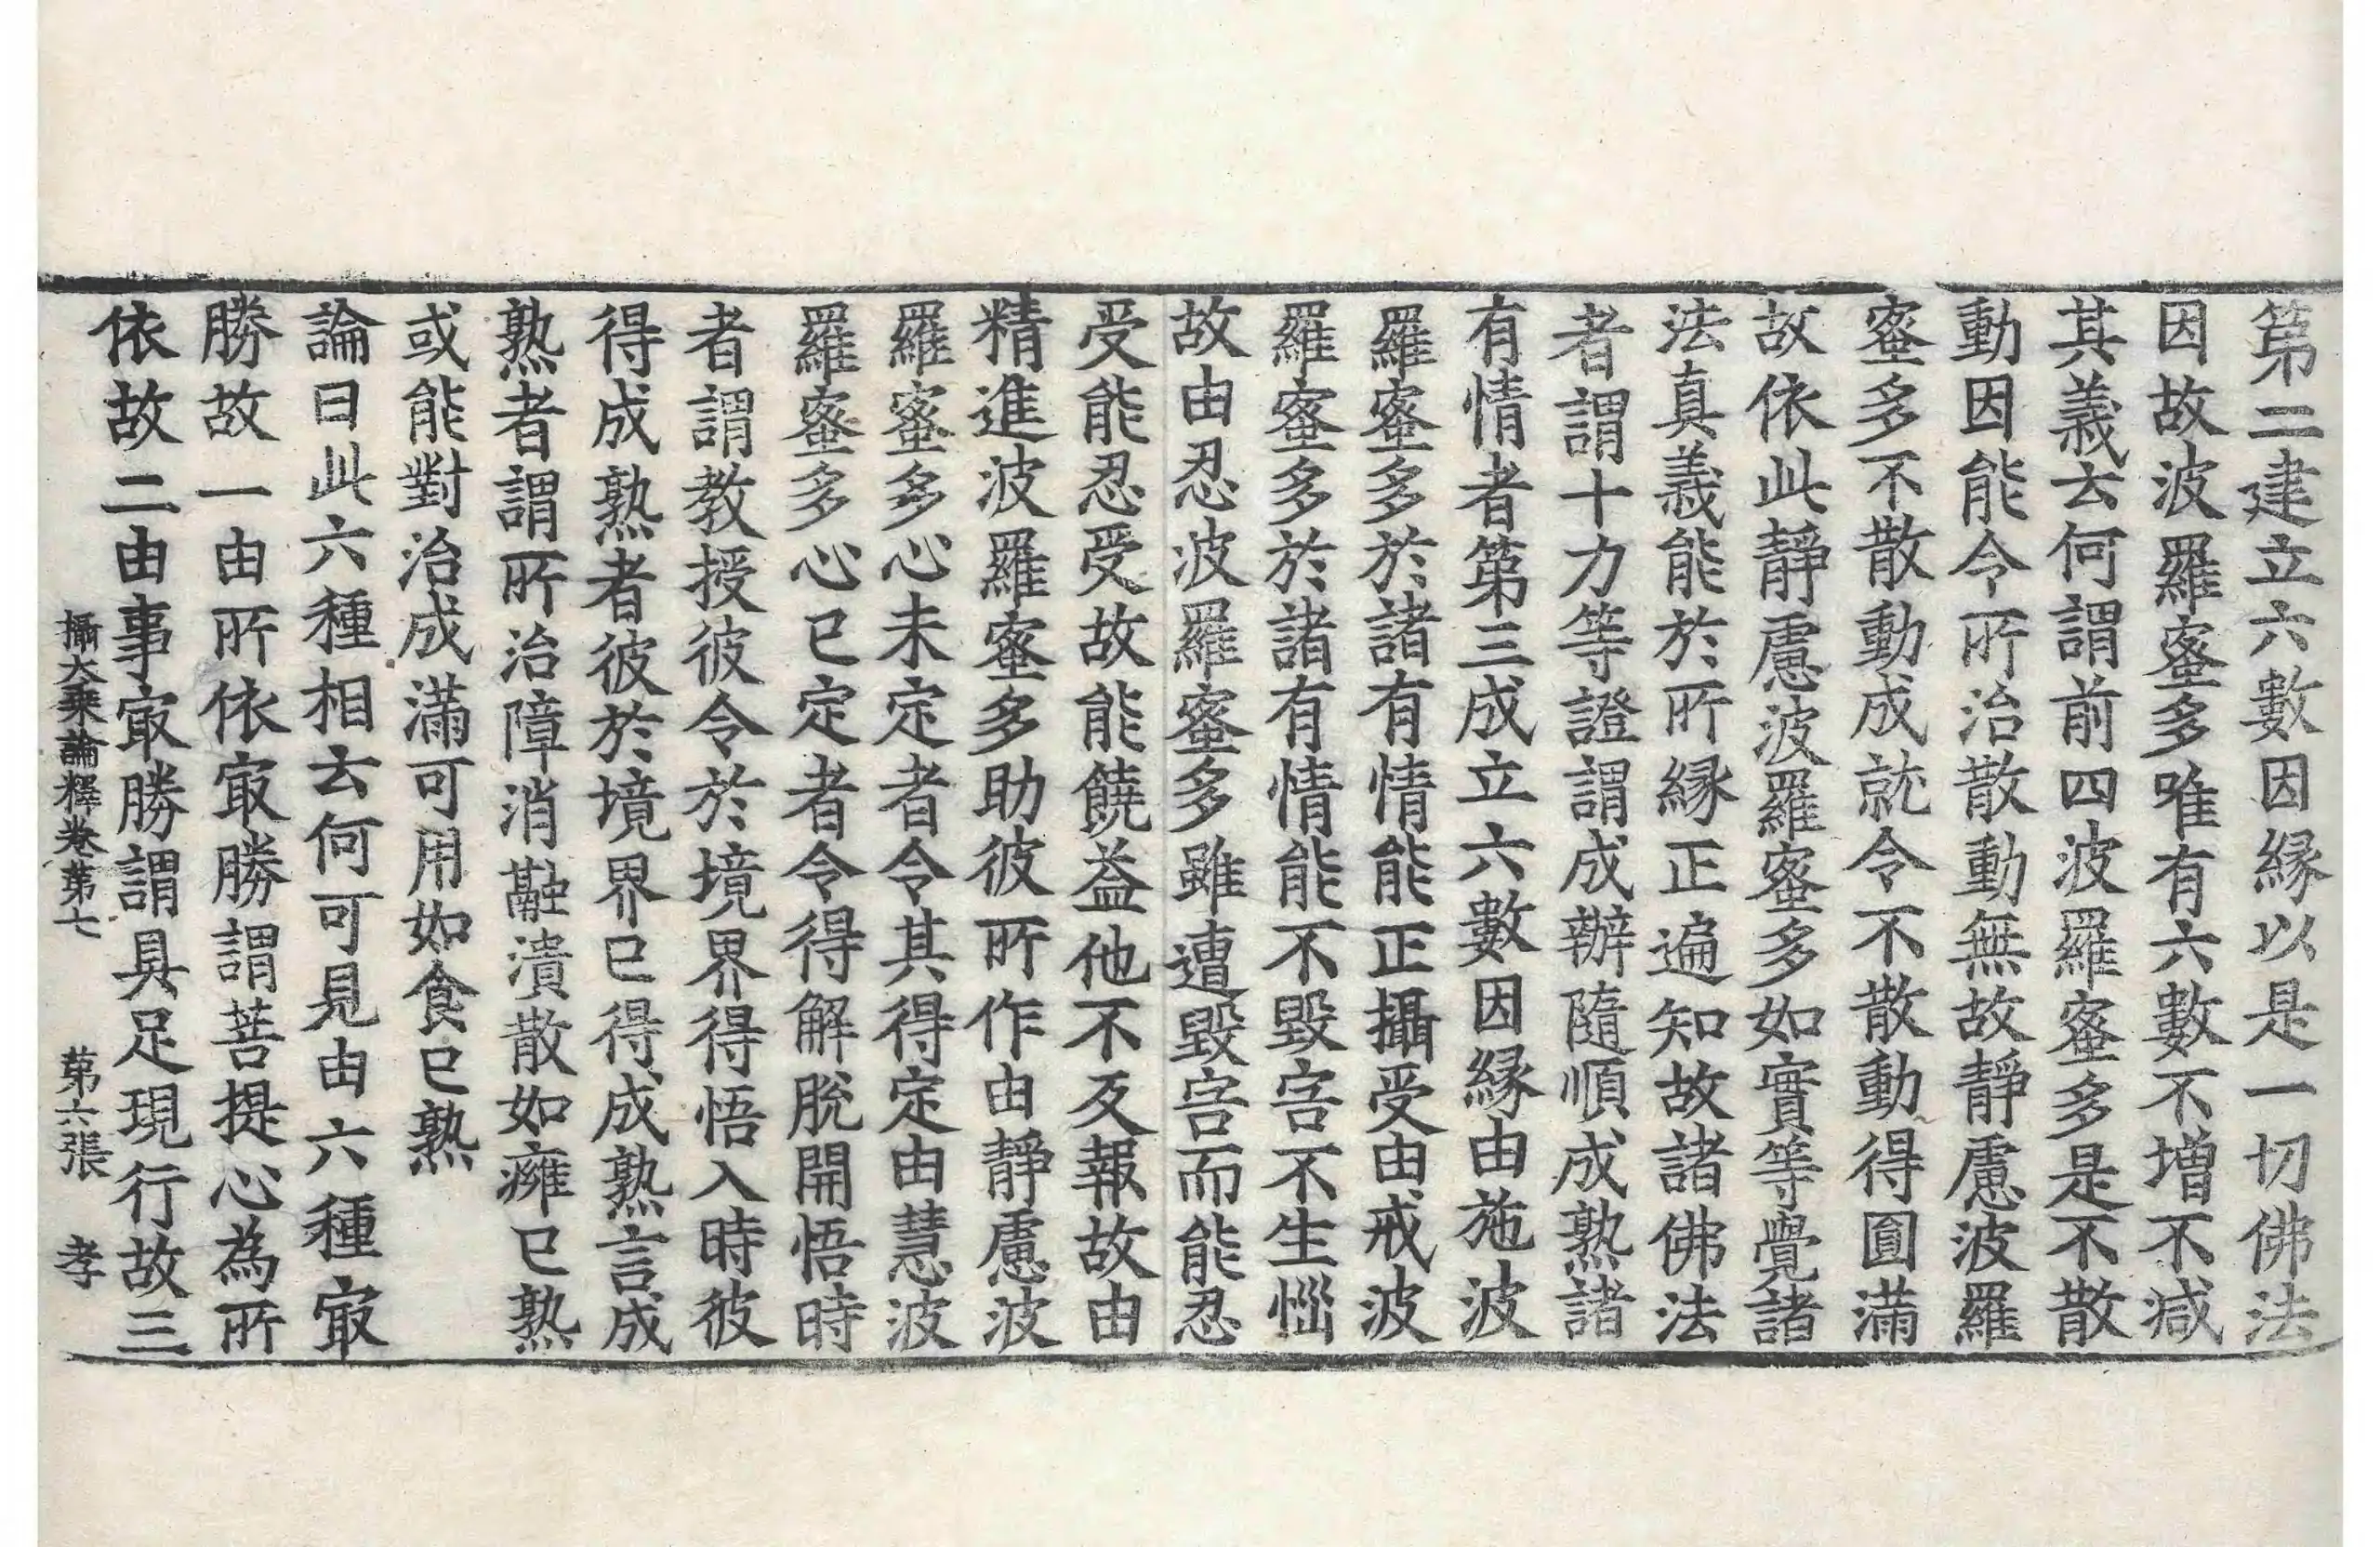 第二建立六數因縁以是一切佛法
因故波羅蜜多唯有六數不增不減
其義云何謂前四波羅蜜多是不散
動因能令所治散動無故靜慮波羅
蜜多不散動成就令不散動得圓滿
故依此靜慮波羅蜜多如實等覺諸
法真義能於所縁正遍知故諸佛法
者謂十力等證謂成辦隨順成熟諸
有情者第三成立六數因縁由施波
羅蜜多於諸有情能正攝受由戒波
羅蜜多於諸有情能不毀害不生惱
故由忍波羅蜜多雖遭毀害而能忍
受能忍受故能饒益他不反報故由
精進波羅蜜多助彼所作由靜慮波
羅蜜多心未定者令其得定由慧波
羅蜜多心已定者令得解脫開悟時
者謂教授彼令於境界得悟入時彼
得成熟者彼於境界已得成熟言成
熟者謂所治障消融潰散如癰已熟
或能對治成滿可用如食已熟
論曰此六種相云何可見由六種㝡
勝故一由所依㝡勝謂菩提心為所
依故二由事㝡勝謂具足現行故三
攝大乘論釋卷第七　第六張　孝